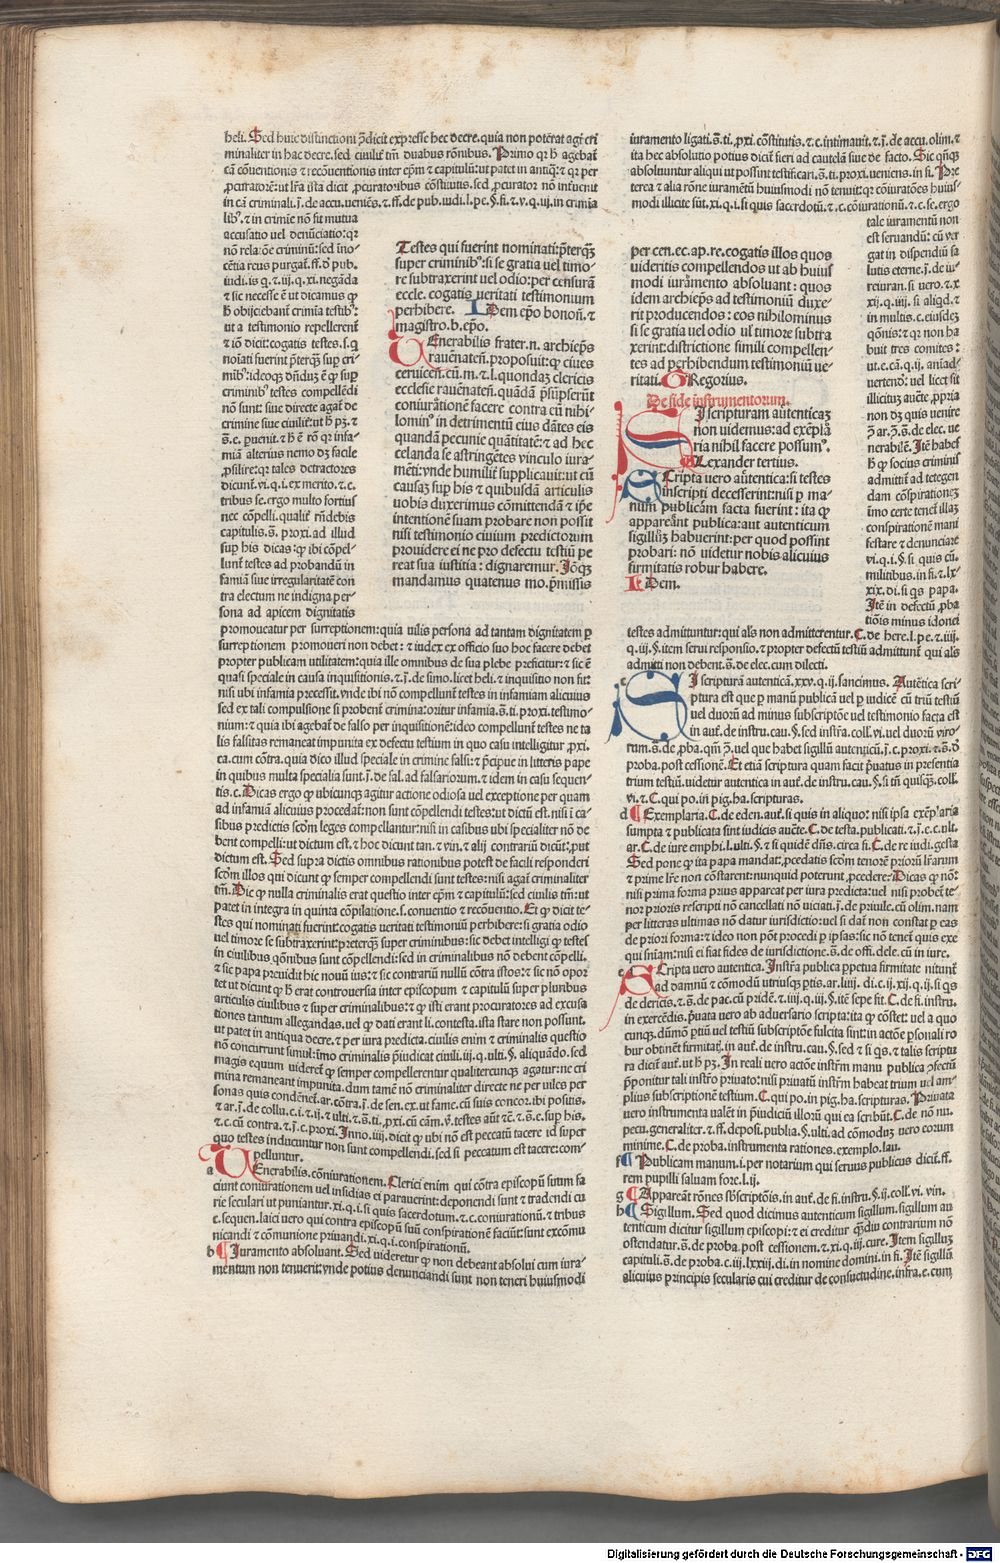 heli. Sed huic distinctioni p̄dicit expresse hec decre. quia non poterat agi cri
minaliter in hac decre. sed ciuilit̄ tm̄ duabus rōnibus. Primo qꝛ h̄ agebat̄
cā cōuentionis ⁊ recōuentionis inter ep̄m ⁊ capitulū: ut patet in antiq̄: ⁊ qꝛ per
ꝓcuratorē: ut lr̄a ista dicit ꝓcuratoribus cōstitutis. sed ꝓcurator nō interuenit
in cā criminali. j̄. de accu. ueniēs. ⁊ ff. de pub. iudi. l. pe. §. fi. ⁊ v. q. vj. in crimia
libꝰ. ⁊ in crimie nō fit mutua
accusatio uel denūciatio: qꝛ
nō relāōe criminū: sed ino-
cētia reus purgat̄. ff. d̄ pub.
iudi. is q. ⁊ iij. q. xi. negāda
⁊ sic necesse ē ut dicamus ꝙ
h̄ obijciebant̄ crimīa testibꝰ:
ut a testimonio repellerent̄
⁊ iō dicit: cogatis testes. s. q
noīati fuerint p̄terqꝫ sup cri
mibꝰ: ideoqꝫ dn̄dus ē ꝙ sup
criminibꝰ testes compellēdi
nō sunt: siue directe agat̄ de
crimine siue ciuilit̄: ut h̄ pꝫ. ⁊
s̄. e. ꝑuenit. ⁊ h̄ ē rō qꝛ infa-
miā alterius nemo dꝫ facile
ꝓsilire: qꝛ tales detractores
dicunt̄. vi. q. i. ex merito. ⁊ c.
tribus se. ergo multo fortius
nec cōpelli. qualit̄ rn̄debis
capitulis. s̄. proxi. ad illud
sup his dicas: ꝙ ibi cōpel-
lunt̄ testes ad probandū in
famiā siue irregularitatē con
tra electum ne indigna per-
sona ad apicem dignitatis
promoueatur per surreptionem: quia uilis persona ad tantam dignitatem ꝑ
surreptionem promoueri non debet: ⁊ iudex ex officio suo hoc facere debet
propter publicam utilitatem: quia ille omnibus de sua plebe preficitur: ⁊ sic ē
quasi speciale in causa inquisitionis. ⁊ j̄. de simo. licet heli. ⁊ inquisitio non fit:
nisi ubi infamia precessit. vnde ibi nō compellunt̄ testes in infamiam alicuius
sed ex tali compulsione si probent̄ crimina: oritur infamia. s̄. ti. proxi. testimo-
nium: ⁊ quia ibi agebat̄ de falso per inquisitionē: ideo compellunt̄ testes ne ta
lis falsitas remaneat impunita ex defectu testium in quo casu intelligitur ꝓxi.
ca. cum cōtra. quia dico illud speciale in crimine falsi: ⁊ p̄cipue in litteris pape
in quibus multa specialia sunt. j̄. de fal. ad falsariorum. ⁊ idem in casu sequen-
tis. c. Dicas ergo ꝙ ubicunqꝫ agitur actione odiosa uel exceptione per quam
ad infamiā alicuius procedat̄: non sunt cōpellendi testes: ut dictū est. nisi ī ca
sibus predictis scd̄m leges compellantur: nisi in casibus ubi specialiter nō de
bent compelli: ut dictum est. ⁊ hoc dicunt tan. ⁊ vin. ⁊ alij contrariū dicūt: put
dictum est. Sed supra dictis omnibus rationibus potest de facili responderi
scd̄m illos qui dicunt ꝙ semper compellendi sunt testes: nisi agat̄ criminaliter
tm̄. Dic ꝙ nulla criminalis erat questio inter ep̄m ⁊ capitulū: sed ciuilis tm̄: ut
patet in integra in quinta cōpilatione. s. conuentio ⁊ recōuentio. Et ꝙ dicit te-
stes qui nominati fuerint: cogatis veritati testimoniū perhibere: si gratia odio
uel timore se subtraxerint: preterqꝫ super criminibus: sic debet intelligi ꝙ testes
in ciuilibus q̄onibus sunt cōpellendi: sed in criminalibus nō debent cōpelli.
⁊ sic papa preuidit hic nouū ius: ⁊ sic contrariū nullū cōtra istos: ⁊ sic nō opor
tet ut dicunt ꝙ h̄ erat controuersia inter episcopum ⁊ capitulū super pluribus
articulis ciuilibus ⁊ super criminalibus: ⁊ ꝙ isti erant procuratores ad excusa
tiones tantum allegandas. uel ꝙ dati erant li. contesta. ista stare non possunt.
ut patet in antiqua decre. ⁊ per iura predicta. ciuilis enim ⁊ criminalis questio
nō concurrunt simul: īmo criminalis p̄iudicat ciuili. iij. q. ulti. §. aliquādo. sed
magis equum uideret̄ ꝙ semper compellerentur qualitercunqꝫ agatur: ne cri
mina remaneant impunita. dum tamē nō criminaliter directe ne per uiles per
sonas quis condēnet̄. ar. cōtra. j̄. de sen. ex. ut fame. cū suis concor. ibi positis.
⁊ ar. j̄. de collu. c. i. ⁊ ij. ⁊ ulti. ⁊ s̄. ti. ꝓxi. cū cām. ꝟ. testes aūt ⁊c̄. ⁊ s̄. e. sup his.
⁊ c. cū contra. ⁊ j̄. c. proxi. Inno. iiij. dicit ꝙ ubi nō est peccatū tacere id super
quo testes inducuntur non sunt compellendi. sed si peccatum est tacere: com-
pelluntur.
a VEnerabilis. cōniurationem. Clerici enim qui cōtra episcopū suum fa
ciunt coniurationem uel insidias ei parauerint: deponendi sunt ⁊ tradendi cu
rie seculari ut puniantur. xi. q. i. si quis sacerdotum. ⁊. c. coniurationū. ⁊ tribus
c. sequen. laici uero qui contra episcopū suū conspirationē faciūt: sunt excōmu
nicandi ⁊ cōmunione priuandi. xi. q. i. conspirationū.
b Iuramento absoluant. Sed uideretur ꝙ non debeant absolui cum iura-
mentum non tenuerit: vnde potius denunciandi sunt non teneri huiusmodi
Testes qui fuerint nominati: p̄terqꝫ
super criminibꝰ: si se gratia uel timo-
re subtraxerint uel odio: per censurā
eccle. cogatis veritati testimonium
perhibere. IDem ep̄o bonon̄. ⁊
magistro. b. ep̄o.
VEnerabilis frater. n. archiep̄s
rauēnaten̄. proposuit: ꝙ ciues
ceruien̄. cū. m. ⁊ l. quondaꝫ clericis
ecclesie rauēnaten̄. quādā p̄sūpserūt
coniurationē facere contra eū nihi-
lominꝰ in detrimentū eius dātes eis
quandā pecunie quātitatē: ⁊ ad hec
celanda se astringētes vinculo iura-
mēti: vnde humilit̄ supplicauit: ut cū
causaꝫ sup his ⁊ quibusdā articulis
uobis duxerimus cōmittendā ⁊ ip̄e
intentionē suam probare non possit
nisi testimonio ciuium predictorum
prouidere ei ne pro defectu testiū pe
reat sua iustitia: dignaremur. Ioq̄ꝫ
mandamus quatenus mo. p̄missis
iuramento ligati. s̄. ti. ꝓxi. cōstitutis. ⁊ c. intimauit. ⁊ j̄. de accu. olim. ⁊
ita hec absolutio potius dicit̄ fieri ad cautelā siue de facto. Sic qn̄qꝫ
absoluuntur aliqui ut possunt testificari. s̄. ti. proxi. veniens. in fi. Pre
terea ⁊ alia rōne iuramētū huiusmodi nō tenuit: qꝛ cōiuratōes huius-
modi illicite sūt. xi. q. i. si quis sacrdotū. ⁊ c. cōiurationū. ⁊ c. se. ergo
tale iuramentū non
est seruandū: cū ver
gat in dispendiū sa
lutis eterne. j̄. de iu-
reiuran. si uero. ⁊ x
xij. q. iiij. si aliqd. ⁊
in multis. c. eiusdeꝫ
q̄onis: ⁊ qꝛ non ha
buit tres comites:
ut. c. cā. q. ij. anīad-
uertendū: uel licet sit
illicituꝫ aucte. ꝓpria
non dꝫ quis venire
ꝯ̄ ar. ꝯ. s̄. de elec. ue
nerabilē. Itē habet̄
h̄ ꝙ socius criminis
admittit̄ ad tetegen
dam cōspirationeꝫ
imo certe tenet̄ illaꝫ
conspirationē mani
festare ⁊ denunciare
vi. q. i. §. si quis cū.
militibus. in fi. ⁊ lx-
xix. di. si qs papa.
Itē in defectū ꝓba
tiōis minus idonei
testes admittuntur: qui al̄s non admitterentur. C. de here. l. pe. ⁊. iiij.
q. iij. §. item serui responsio. ⁊ propter defectū testiū admittunt̄ qui al̄s
admitti non debent. s̄. de elec. cum dilecti.
per cen. ec. ap. re. cogatis illos quos
uideritis compellendos ut ab huius
modi iuramento absoluant: quos
idem archiep̄s ad testimoniū duxe-
rit producendos: eos nihilominus
si se gratia uel odio ul̄ timore subtra
xerint: districtione simili compellen-
tes ad perhibendum testimoniū ve-
ritati. GRegorius.
De fide instrumentorum.
SI scripturam autenticaꝫ
non uidemus: ad exēplā
ria nihil facere possumꝰ.
ALexander tertius.
SCripta uero aūtentica: si testes
inscripti decesserint: nisi ꝑ ma-
num publicam facta fuerint: ita ꝙ
appareāt publica: aut autenticum
sigilluꝫ habuerint: per quod possint
probari: nō uidetur nobis alicuius
firmitatis robur habere.
IDem.
c SI scripturā autenticā. xxv. q. ij. sancimus. Autētica scri-
ptura est que ꝑ manū publicā uel ꝑ iudicē cū triū testiū
uel duorū ad minus subscriptōe uel testimonio facta est
in aut̄. de instru. cau. §. sed instra. coll. vi. uel duorū viro-
rum. s̄. de ꝓba. qm̄ ꝯ. uel que habet sigillū autenticū. j̄. c. proxi. ⁊ s̄. d̄
proba. post cessionē. Et etiā scriptura quam facit p̄uatus in presentia
trium testiū. uidetur autentica in aut̄. de instru. cau. §. si tn̄ quisqꝫ. coll.
vi. ⁊ C. qui po. in pig. ha. scripturas.
d Exemplaria. C. de eden. aut̄. si quis in aliquo: nisi ipsa exēpꝉaria
sumpta ⁊ publicata sint iudicis aucte. C. de testa. publicati. ⁊ j̄. e. c. ult.
ar. C. de iure emphi. l. ulti. §. ⁊ si quidē dn̄s. circa fi. C. de re iudi. gesta
Sed pone ꝙ ita papa mandat: ꝓcedatis scd̄m tenorē priorū lr̄arum
⁊ prime lr̄e non cōstarent: nunquid poterunt ꝓcedere? Dicas ꝙ nō:
nisi prima forma prius appareat per iura predicta: uel nisi probet̄ te-
nor prioris rescripti nō cancellati nō viciati. j̄. de priuile. cū olim. nam
per litteras ultimas nō datur iurisdictio: uel si dat̄ non constat ꝑ eas
de priori forma: ⁊ ideo non pōt procedi ꝑ ipsas: sic nō tenet̄ quis exe
qui sn̄iam: nisi ei fiat fides de iurisdictione. s̄. de offi. dele. cū in iure.
e SCripta vero autentica. Instra publica ꝑpetua firmitate nitunt̄
ad damnū ⁊ cōmodū utriusqꝫ ptis. ar. luiij. di. c. ij. xij. q. ij. si qs
de clericis. ⁊ s̄. de pac. cū pridē. ⁊ iiij. q. iij. §. itē sepe fit. C. de fi. instru.
in exercēdis. p̄uata vero ab aduersario scripta: ita ꝙ cōstet: uel a quo
cunqꝫ. dūmō ptiū uel testiū subscriptōe fulcita sint: in actōe ꝑsonali ro
bur obtinēt firmitatis. in aut̄. de instru. cau. §. sed ⁊ si qs. ⁊ talis scriptu
ra dicit̄ aut̄. ut h̄ pꝫ. In reali vero actōe instrm̄ manu publica ꝯfectū
p̄ponitur tali instro priuato: nisi priuatū instrm̄ habeat trium uel am-
plius subscriptionē testium. C. qui po. in pig. ha. scripturas. Priuata
vero instrumenta ualēt in p̄iudiciū illorū qui ea scribūt. C. de nō nu.
pecu. generaliter. ⁊ ff. deposi. publia. §. ulti. ad cōmoduꝫ vero eorum
minime. C. de proba. instrumenta rationes. exemplo. lau.
f Publicam manum. i. per notarium qui seruus publicus dicit̄. ff.
rem pupilli saluam fore. l. ij.
g Appareāt rōnes sb̄scriptōis. in aut̄. de fi. instru. §. ij. coll. vi. vin.
h Sigillum. Sed quod dicimus autenticum sigillum. sigillum au
tenticum dicitur sigillum episcopi: ⁊ ei creditur qm̄diu contrarium nō
ostendatur. s̄. de proba. post cessionem. ⁊. xi. q. iij. cure. Item sigilluꝫ
capituli. s̄. de proba. c. iij. lxxiij. di. in nomine domini. in fi. Itē sigillū
alicuius principis secularis cui creditur de consuetudine. infra. e. cum
Digitalisierung gefördert durch die Deutsche Forschungsgemeinschaft - DFG